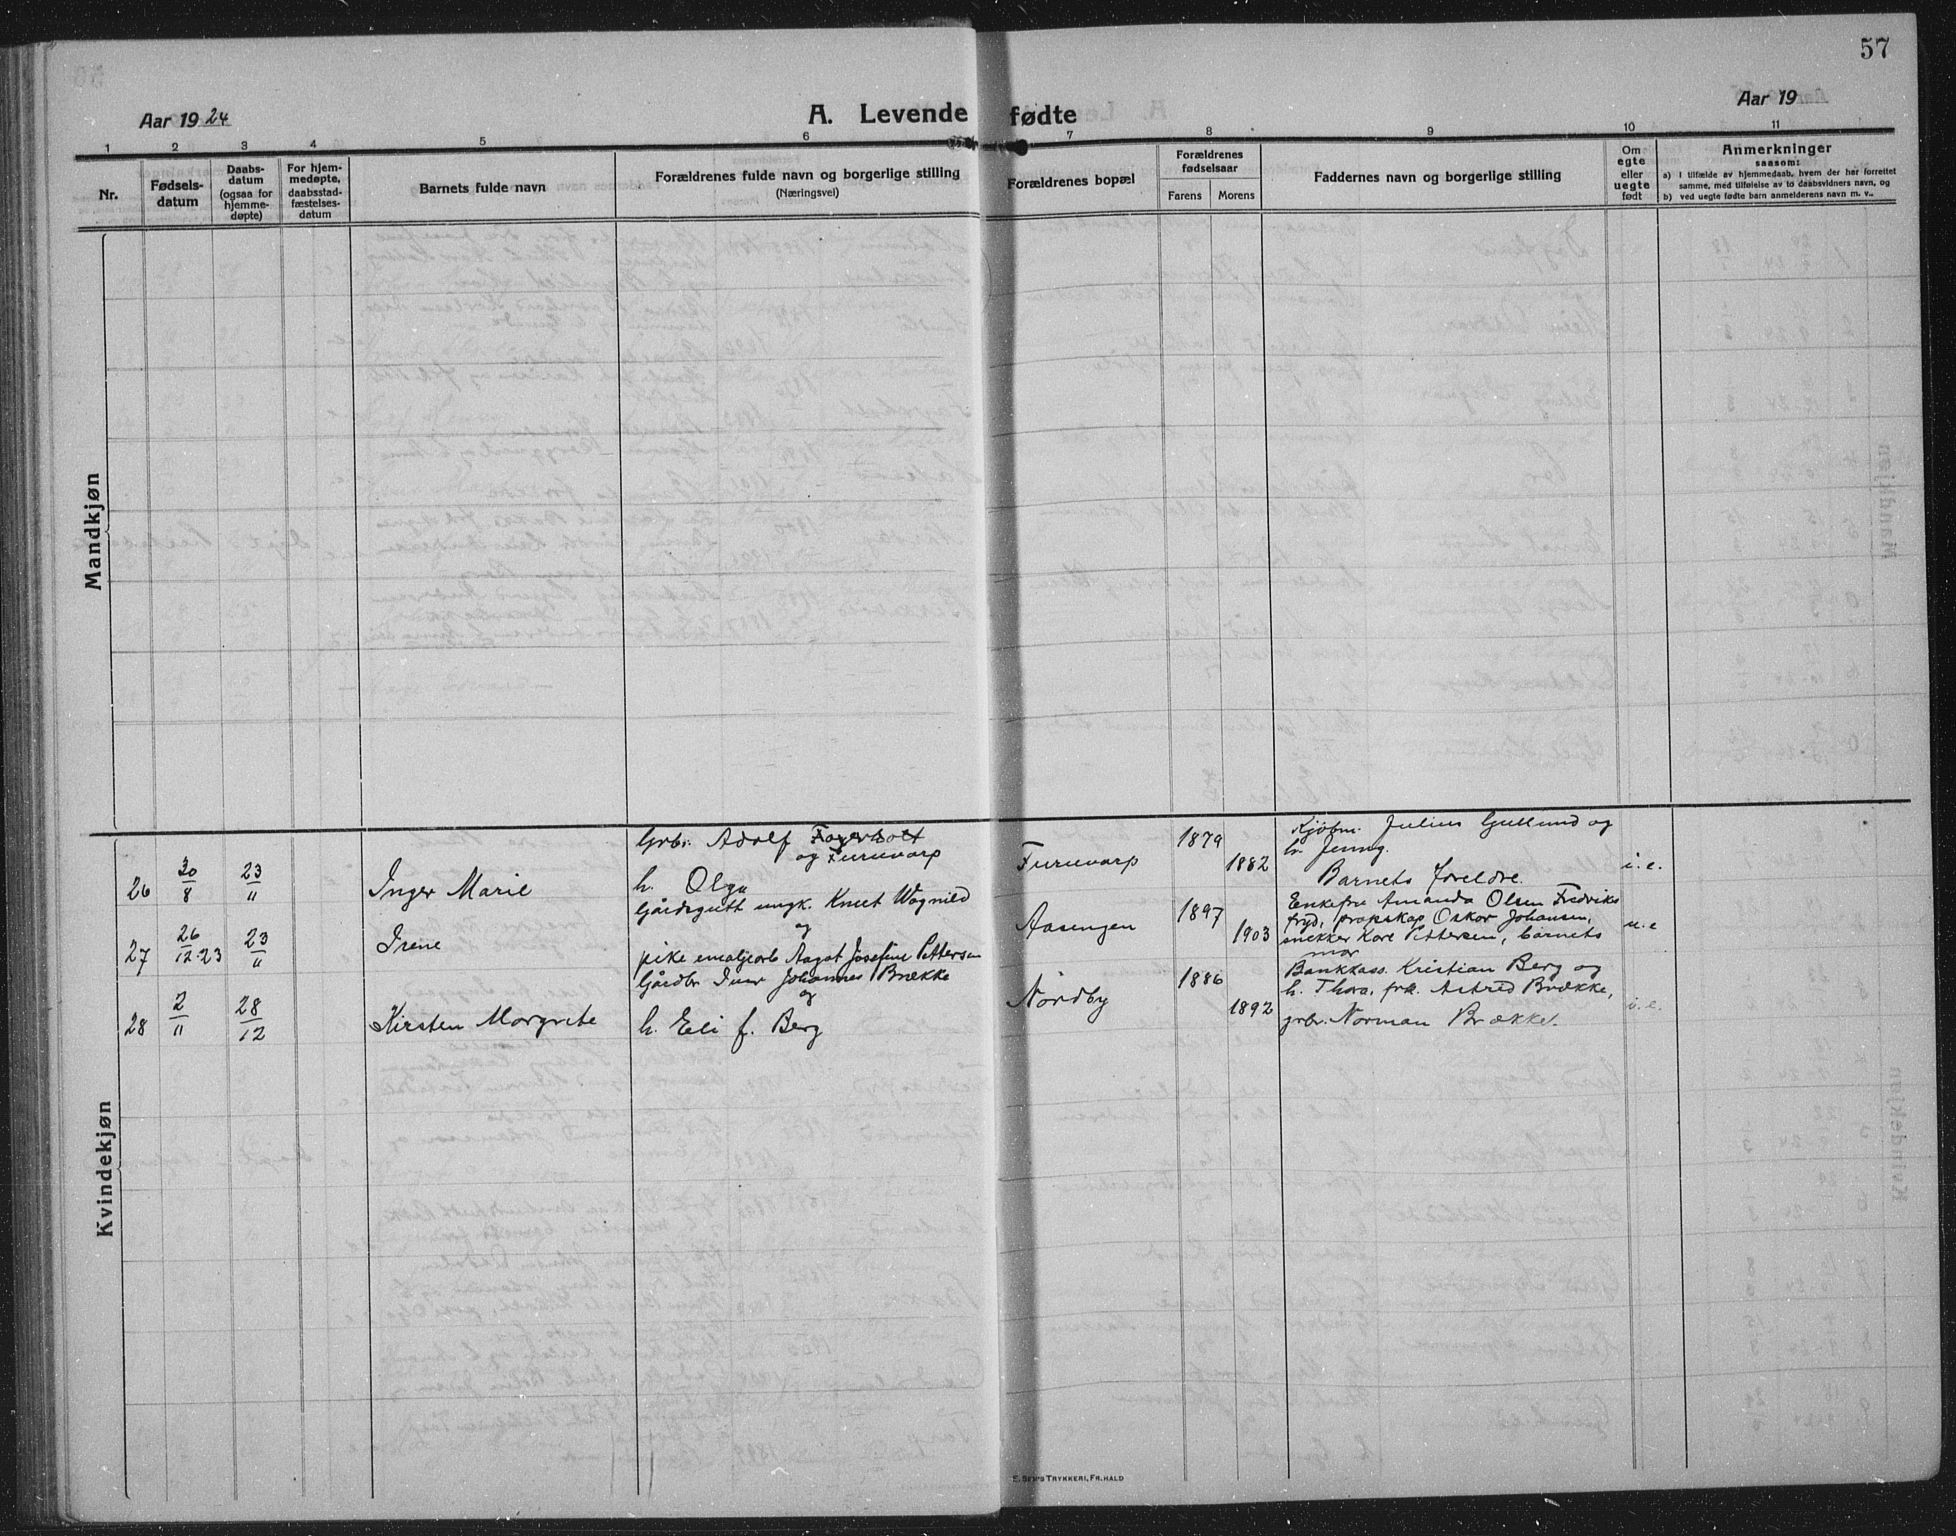 57
Aar 1924
A. Levende fødte
Aar 19
1 2 3 4 5 6 7 8 9 10 11
Nr.
Fødsels-
datum
Daabs-
datum
(ogsaa for
hjemme-
døpte)
For hjem-
medøpte,
daabsstad-
fæstelses-
datum
Barnets fulde navn
Forældrenes fulde navn og borgerlige stilling
(Næringsvei)
Forældrenes bopæl
Forældrenes
fødselsaar
Farens Morens
Faddernes navn og borgerlige stilling
Om
egte
eller
uegte
født
Anmerkninger
saasom:
a) I tilfælde av hjemmedaab, hvem der har forrettet
samme, med tilføielse av to daabsvidners navn, og
b) ved uegte fødte barn anmelderens navn m. v..
Mandkjøn
Kvindekjøn
26 30/8 23/11 Inger Marie
Grbr. Adolf Fagerholt
og Furuvarp
h. Olga
Furuvarp 1879 1882
Kjøbm. Julius Gullund og
h. Jenny.
Barnets foreldre.
i.e.
27 26/12-23 23/11 Irene
Gårdsgutt ungk. Knut Wognild
og
pike emaljearb Aagot Josefine Pettersen
Aasengen 1897 1903
Enkefru Amanda Olsen Fredriks
fryd, Oskar Johansen,
snekker Kare Pettersen, barnets
mor
u.e
28 2/11 28/12 Kirsten Margrete
Gårdbr Iver Johannes Brække
og
h. Eli f. Berg
Nordby 1886 1892
Bankkass. Kristian Berg og
h. Thora, frk. Astrid Brække,
grbr. Norman Brække.
i.e.
E. Sem's Trykkeri, Fr.hald